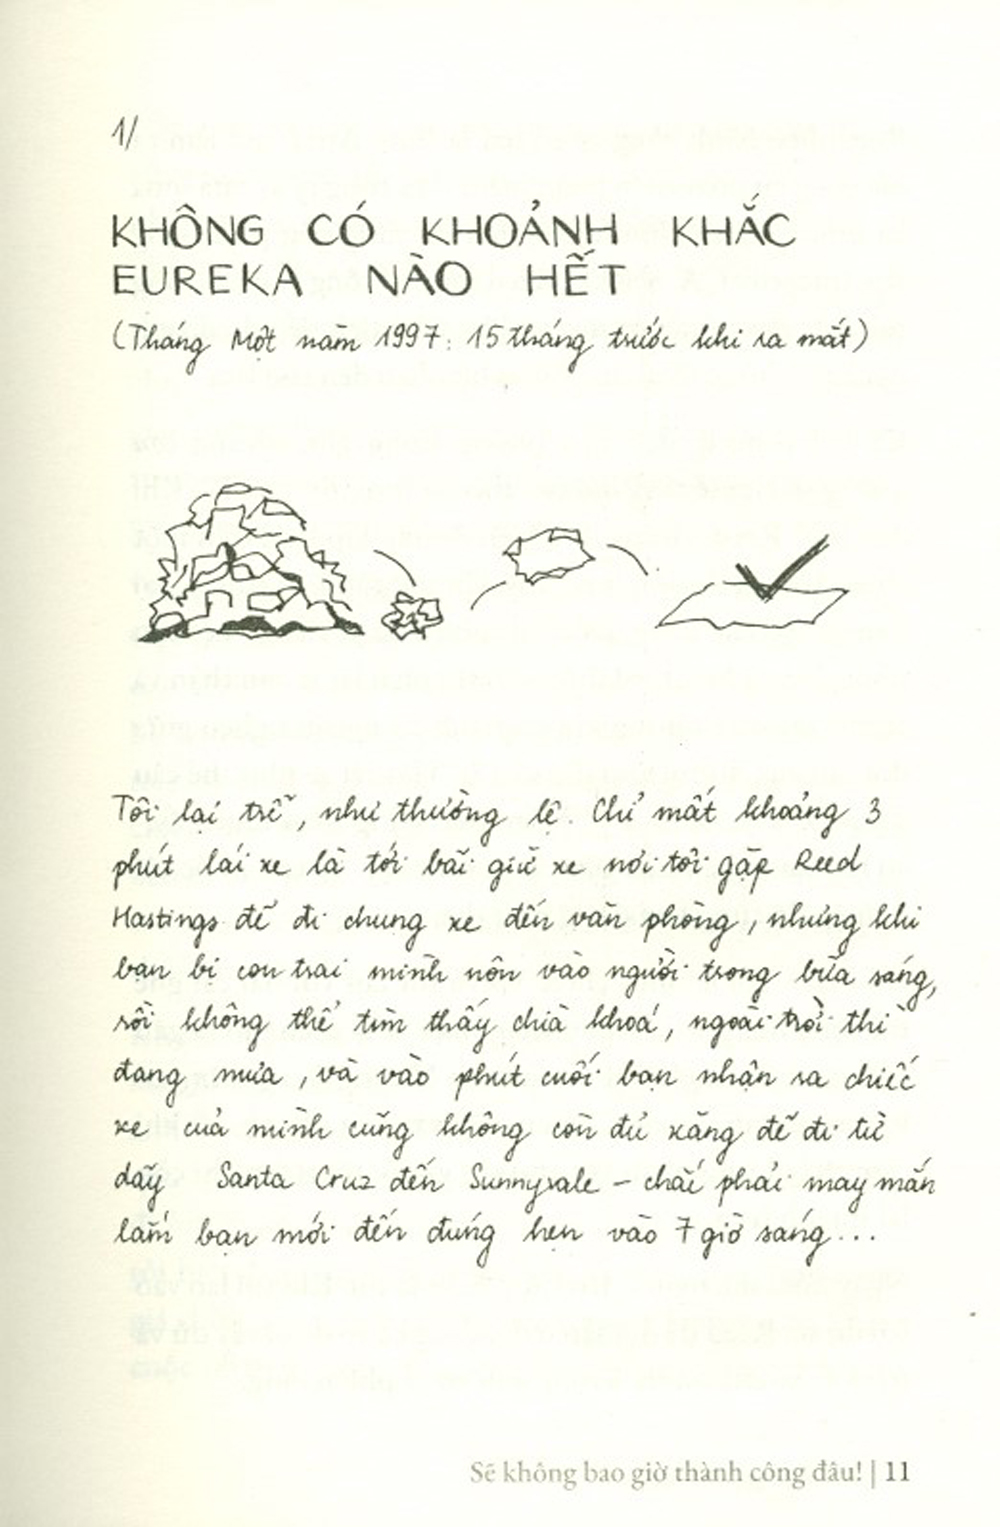 1/
KHÔNG CÓ KHOẢNH KHẮC
EUREKA NÀO HẾT
(Tháng Một năm 1997: 15 tháng trước khi ra mắt)
Tôi lại trễ, như thường lệ. Chỉ mất khoảng 3
phút lái xe là tới bãi giữ xe nơi tôi gặp Reed
Hastings để đi chung xe đến văn phòng, nhưng khi
bạn bị con trai mình nôn vào người trong bữa sáng,
rồi không thể tìm thấy chìa khoá, ngoài trời thì
đang mưa, và vào phút cuối bạn nhận ra chiếc
xe của mình cũng không còn đủ xăng để đi từ
dãy Santa Cruz đến Sunnyvale – chắc phải may mắn
lắm bạn mới đến đúng hẹn vào 7 giờ sáng...
Sẽ không bao giờ thành công đâu! | 11